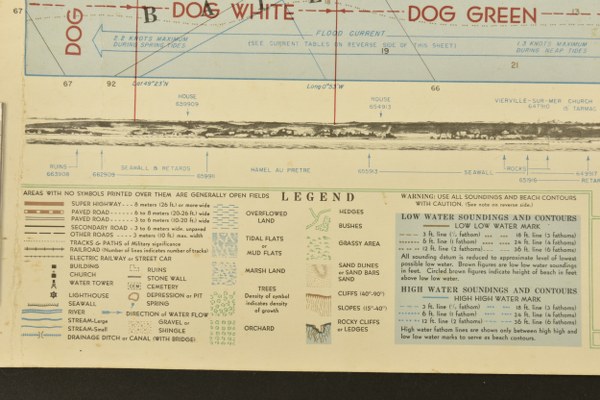 67
DOG
B
DOG WHITE
DOG GREEN
2.2 KNOTS MAXIMUM
DURING SPRING TIDES
FLOOD CURRENT
(SEE CURRENT TABLES ON REVERSE SIDE OF THIS SHEET)
19
1.3 KNOTS MAXIMUM
DURING NEAP TIDES
21
67
92
Lat 49°23'N
Long 0°53'W
66
HOUSE
HOUSE
VIERVILLE-SUR-MER CHURCH
RUINS
SEAWALL & RETARDS
HAMEL AU PRETRE
SEAWALL
ROCKS
AREAS WITH NO SYMBOLS PRINTED OVER THEM ARE GENERALLY OPEN FIELDS
LEGEND
SUPER HIGHWAY 8 meters (26 ft.) or more wide
PAVED ROAD 6 to 8 meters (20-26 ft.) wide
PAVED ROAD 3 to 6 meters (10-20 ft.) wide
SECONDARY ROAD 3 to 6 meters wide, unpaved
OTHER ROADS 3 meters (10 ft.) max. width
TRACKS & PATHS of Military significance
RAILROAD (Number of lines indicates number of tracks)
ELECTRIC RAILWAY or STREET CAR
BUILDING
CHURCH
WATER TOWER
LIGHTHOUSE
SEAWALL
RIVER
STREAM-Large
STREAM-Small
DRAINAGE DITCH or CANAL (WITH BRIDGE)
RUINS
STONE WALL
CEMETERY
DEPRESSION or PIT
SPRING
DIRECTION OF WATER FLOW
GRAVEL or
SHINGLE
OVERFLOWED
LAND
TIDAL FLATS
or
MUD FLATS
MARSH LAND
TREES
Density of symbol
indicates density
of growth
ORCHARD
HEDGES
BUSHES
GRASSY AREA
SAND DUNES
or SAND BARS
SAND
CLIFFS (40°-90°)
SLOPES (15°-40°)
ROCKY CLIFFS
or LEDGES
WARNING: USE ALL SOUNDINGS AND BEACH CONTOURS
WITH CAUTION. (See note on reverse side.)
LOW WATER SOUNDINGS AND CONTOURS
LOW LOW WATER MARK
6 ft. line (1 fathom)
18 ft. line (3 fathoms)
12 ft. line (2 fathoms)
36 ft. line (6 fathoms)
All sounding datum is reduced to approximate level of lowest
possible low water. Brown figures are low water soundings
in feet. Circled brown figures indicate height of beach in feet
above low low water.
HIGH WATER SOUNDINGS AND CONTOURS
HIGH HIGH WATER MARK
12 ft. line (2 fathoms)
36 ft. line (6 fathoms)
High water fathom lines are shown only between high high
and low low water marks to serve as beach contours.